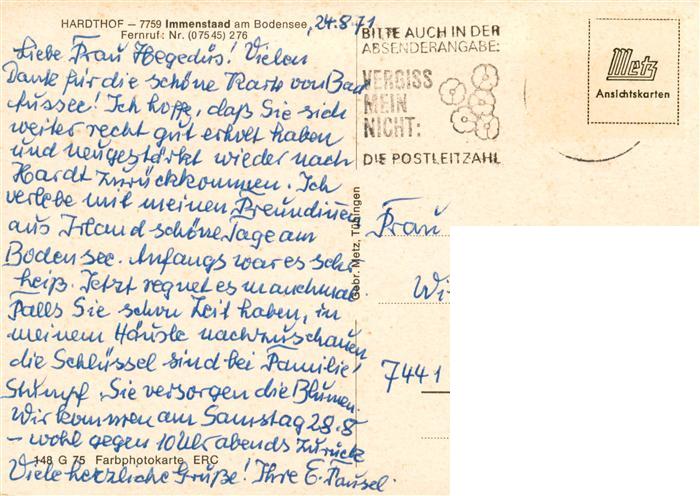 HARDTHOF – 7759 Immenstaad am Bodensee, 24.8.71
Fernruf: Nr. (07545) 276
Liebe Frau Hegedüs! Vielen
Dank für die schöne Karte von Bad
Aussee! Ich hoffe, daß Sie sich
weiter recht gut erholt haben
und neugestärkt wieder nach
Hardt zurückkommen. Ich
verlebe mit meinen Freundinnen
aus Irland schöne Tage am
Bodensee. Anfangs war es sehr
heiß. Jetzt regnet es manchmal.
Falls Sie schon Zeit haben, in
meinem Häusle nachzuschauen
die Schlüssel sind bei Familie
Stumpf. Sie versorgen die Blumen.
Wir kommen am Samstag 28.8
– wohl gegen 10 Uhr abends zurück
148 G 75 Farbphotokarte ERC
Viele herzliche Grüße! Ihre E. Pausel.
Gebr. Metz, Tübingen
BITTE AUCH IN DER
ABSENDERANGABE:
VERGISS
MEIN
NICHT:
DIE POSTLEITZAHL
Metz
Ansichtskarten
Frau
Wi
7441